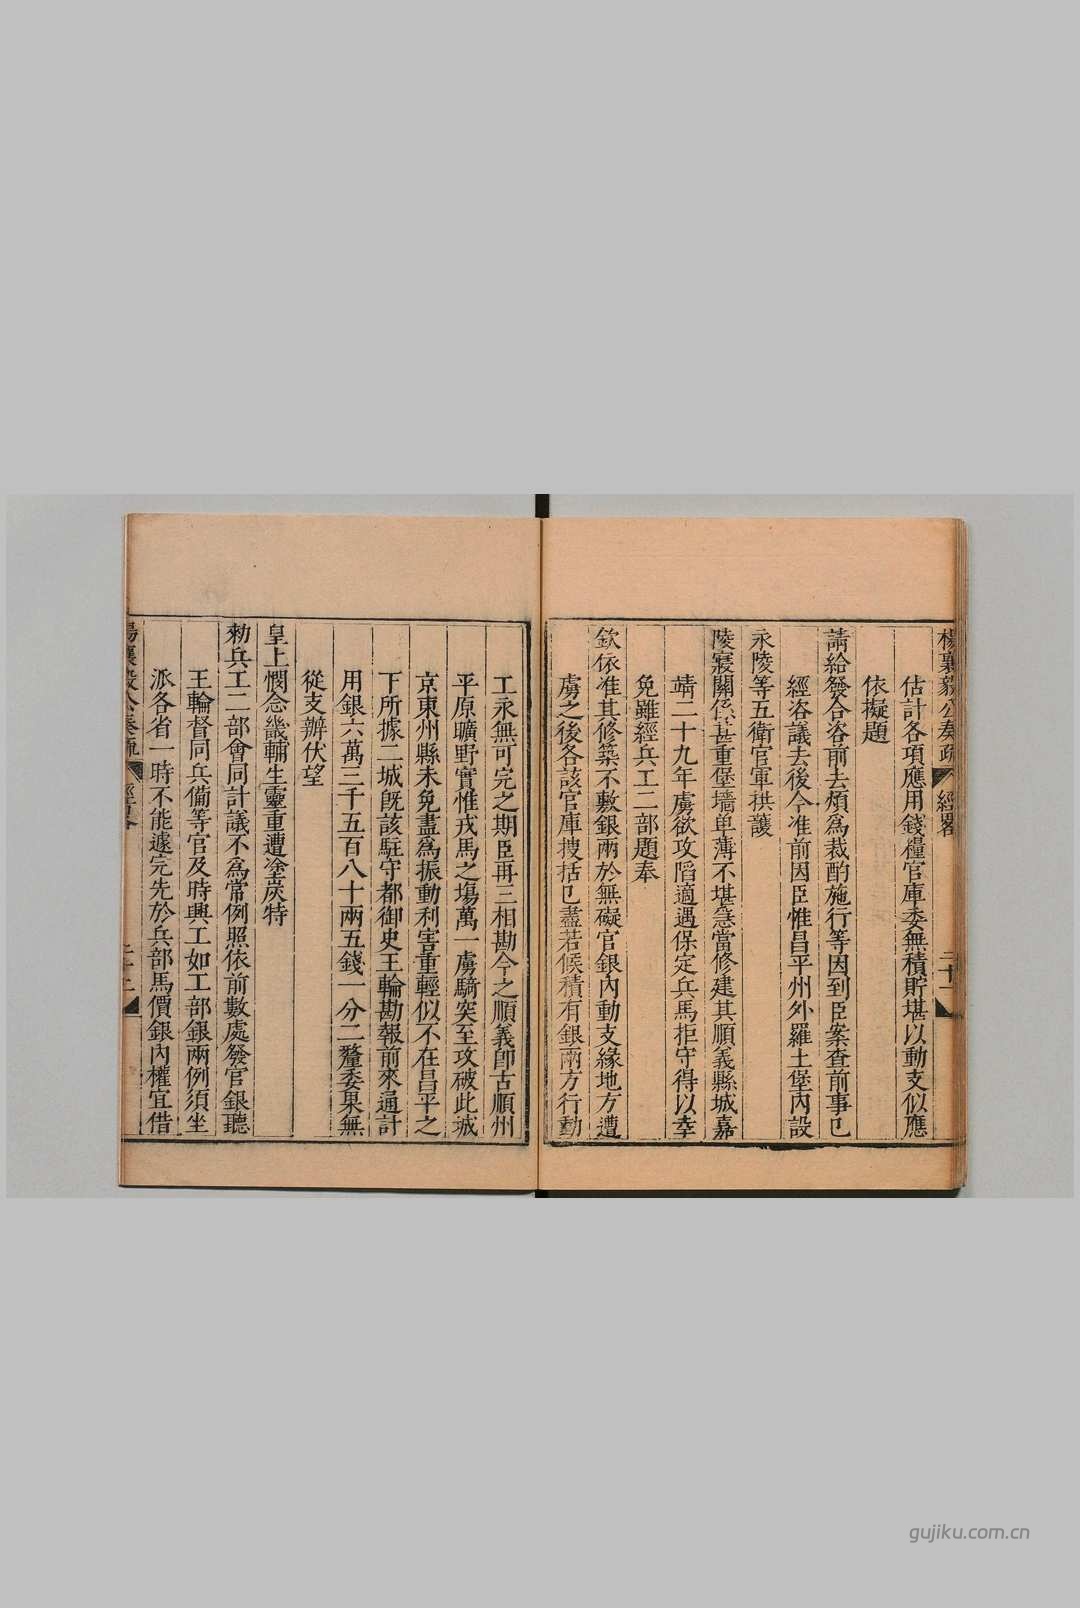 楊襄毅公奏疏 經畧 二十一
估計各項應用錢糧官庫委無積貯堪以動支似應
依擬題
請給發合咨前去煩為裁酌施行等因到臣案查前事已
經咨議去後今准前因臣惟昌平州外羅土堡內設
永陵等五衛官軍拱護
陵寢關係甚重堡墻单薄不堪急當修建其順義縣城嘉
靖二十九年虜欲攻陷適遇保定兵馬拒守得以幸
免雖經兵工二部題奉
欽依准其修築不敷銀兩於無礙官銀內動支緣地方遭
虜之後各該官庫搜括已盡若候積有銀兩方行動
工永無可完之期臣再三相勘今之順義卽古順州
平原曠野實惟戎馬之塲萬一虜騎突至攻破此城
京東州縣未免盡為振動利害重輕似不在昌平之
下所據二城旣該駐守都御史王輪勘報前來通計
用銀六萬三千五百八十兩五錢一分二釐委果無
從支辦伏望
皇上憫念畿輔生靈重遭塗炭特
勑兵工二部會同計議不為常例照依前數處發官銀聽
王輪督同兵備等官及時興工如工部銀兩例須坐
派各省一時不能遽完先於兵部馬價銀內權宜借
楊襄毅公奏疏 經畧 二十二
gujiku.com.cn